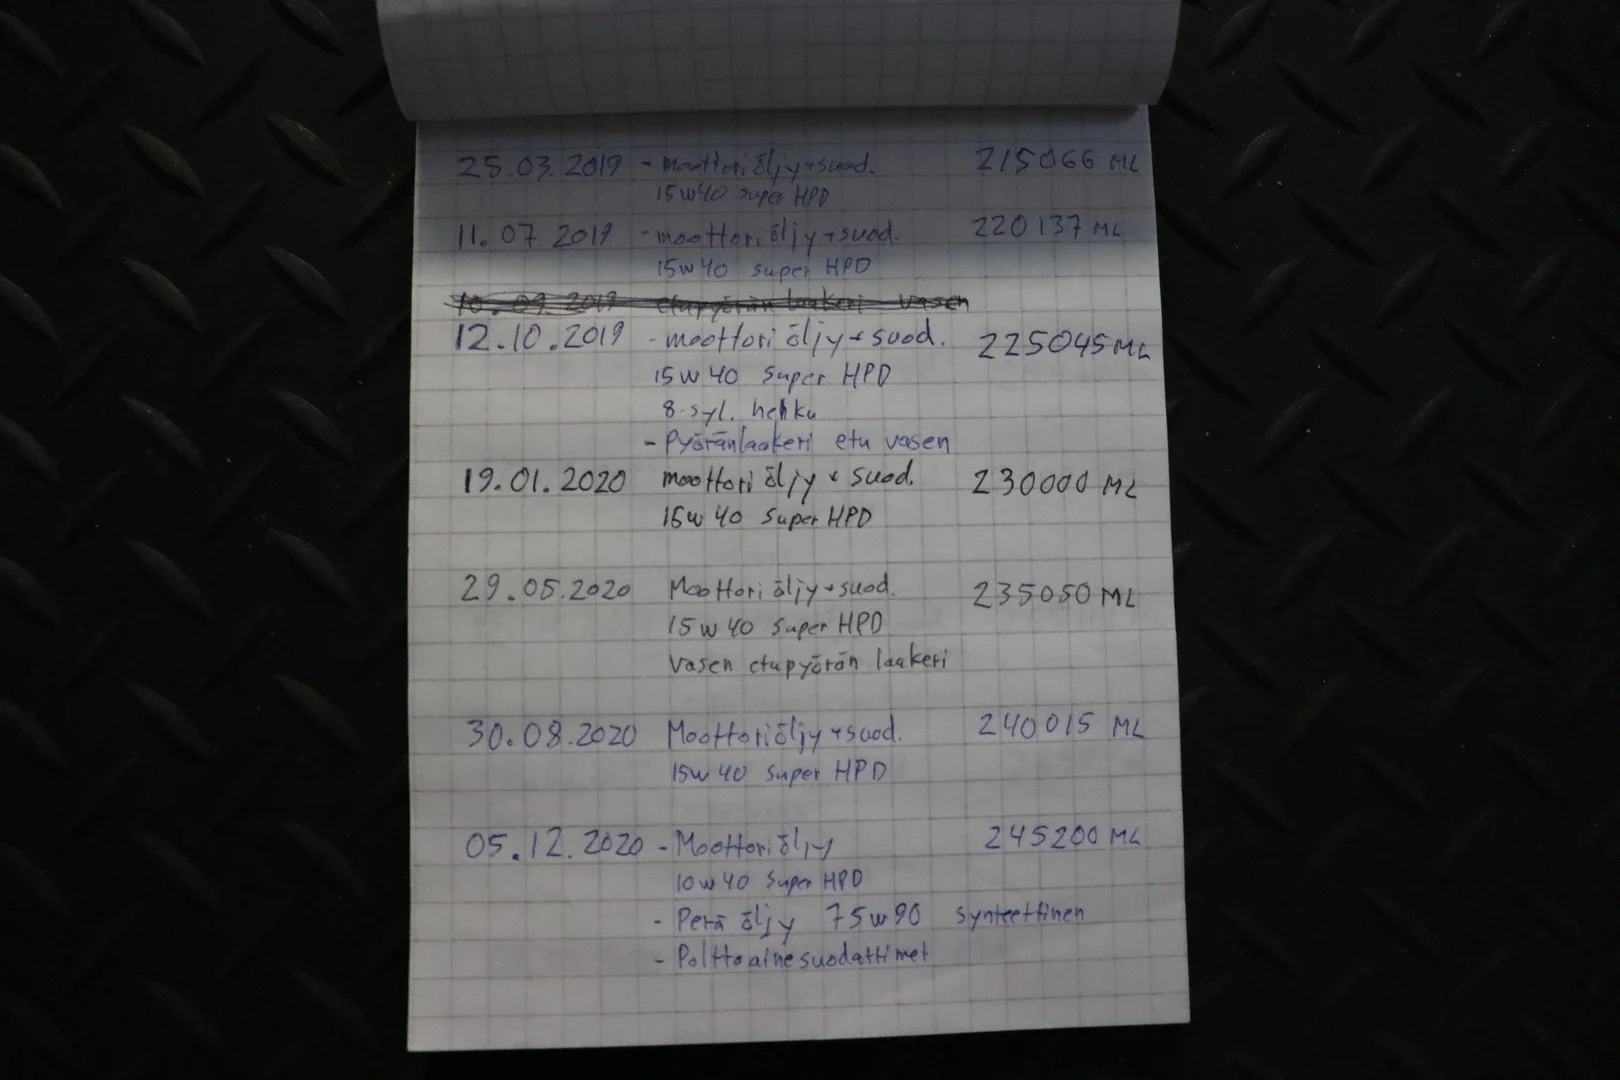 25.03.2019 - moottoriöljy+suod. 215066 ML
15w40 Super HPD
11.07.2019 - moottoriöljy+suod. 220137 ML
15w40 super HPD
10.09.2019 etupyörän laakeri vasen
12.10.2019 - moottoriöljy+suod. 225045 ML
15w40 Super HPD
8-syl. hehku
- Pyöränlaakeri etu vasen
19.01.2020 moottoriöljy + suod. 230000 ML
15w40 Super HPD
29.05.2020 Moottoriöljy+suod. 235050 ML
15w40 Super HPD
Vasen etupyörän laakeri
30.08.2020 Moottoriöljy+suod. 240015 ML
15w40 Super HPD
05.12.2020 - Moottoriöljy 245200 ML
10w40 Super HPD
- Perä öljy 75w90 synteettinen
- Polttoainesuodattimet